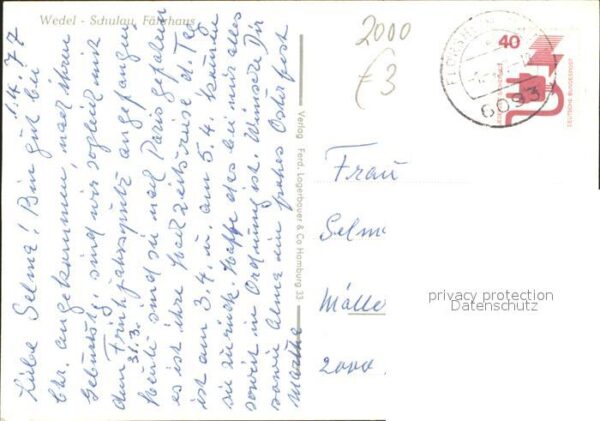 Wedel - Schulau, Fährhaus
1.4.77
Liebe Selma! Bin gut bei
Chr. angekommen, nach ihrem
Geburtst., sind wir sogleich mit
dem Frühjahrsputz angefangen,
31.3.
Heute sind sie nach Paris gefahren
es ist ihre Hochzeitsreise d. Tag
ist am 3.4. u. am 5.4. kommen
sie zurück. Hoffe das bei Dir alles
soweit in Ordnung ist. Wünsche Dir
sowie Alma ein frohes Osterfest
Martha
Verlag Ferd. Lagerbauer & Co Hamburg 33
2000
£3
6093
40
DEUTSCHE BUNDESPOST
Frau
Selma
Mölle
2000
privacy protection
Datenschutz